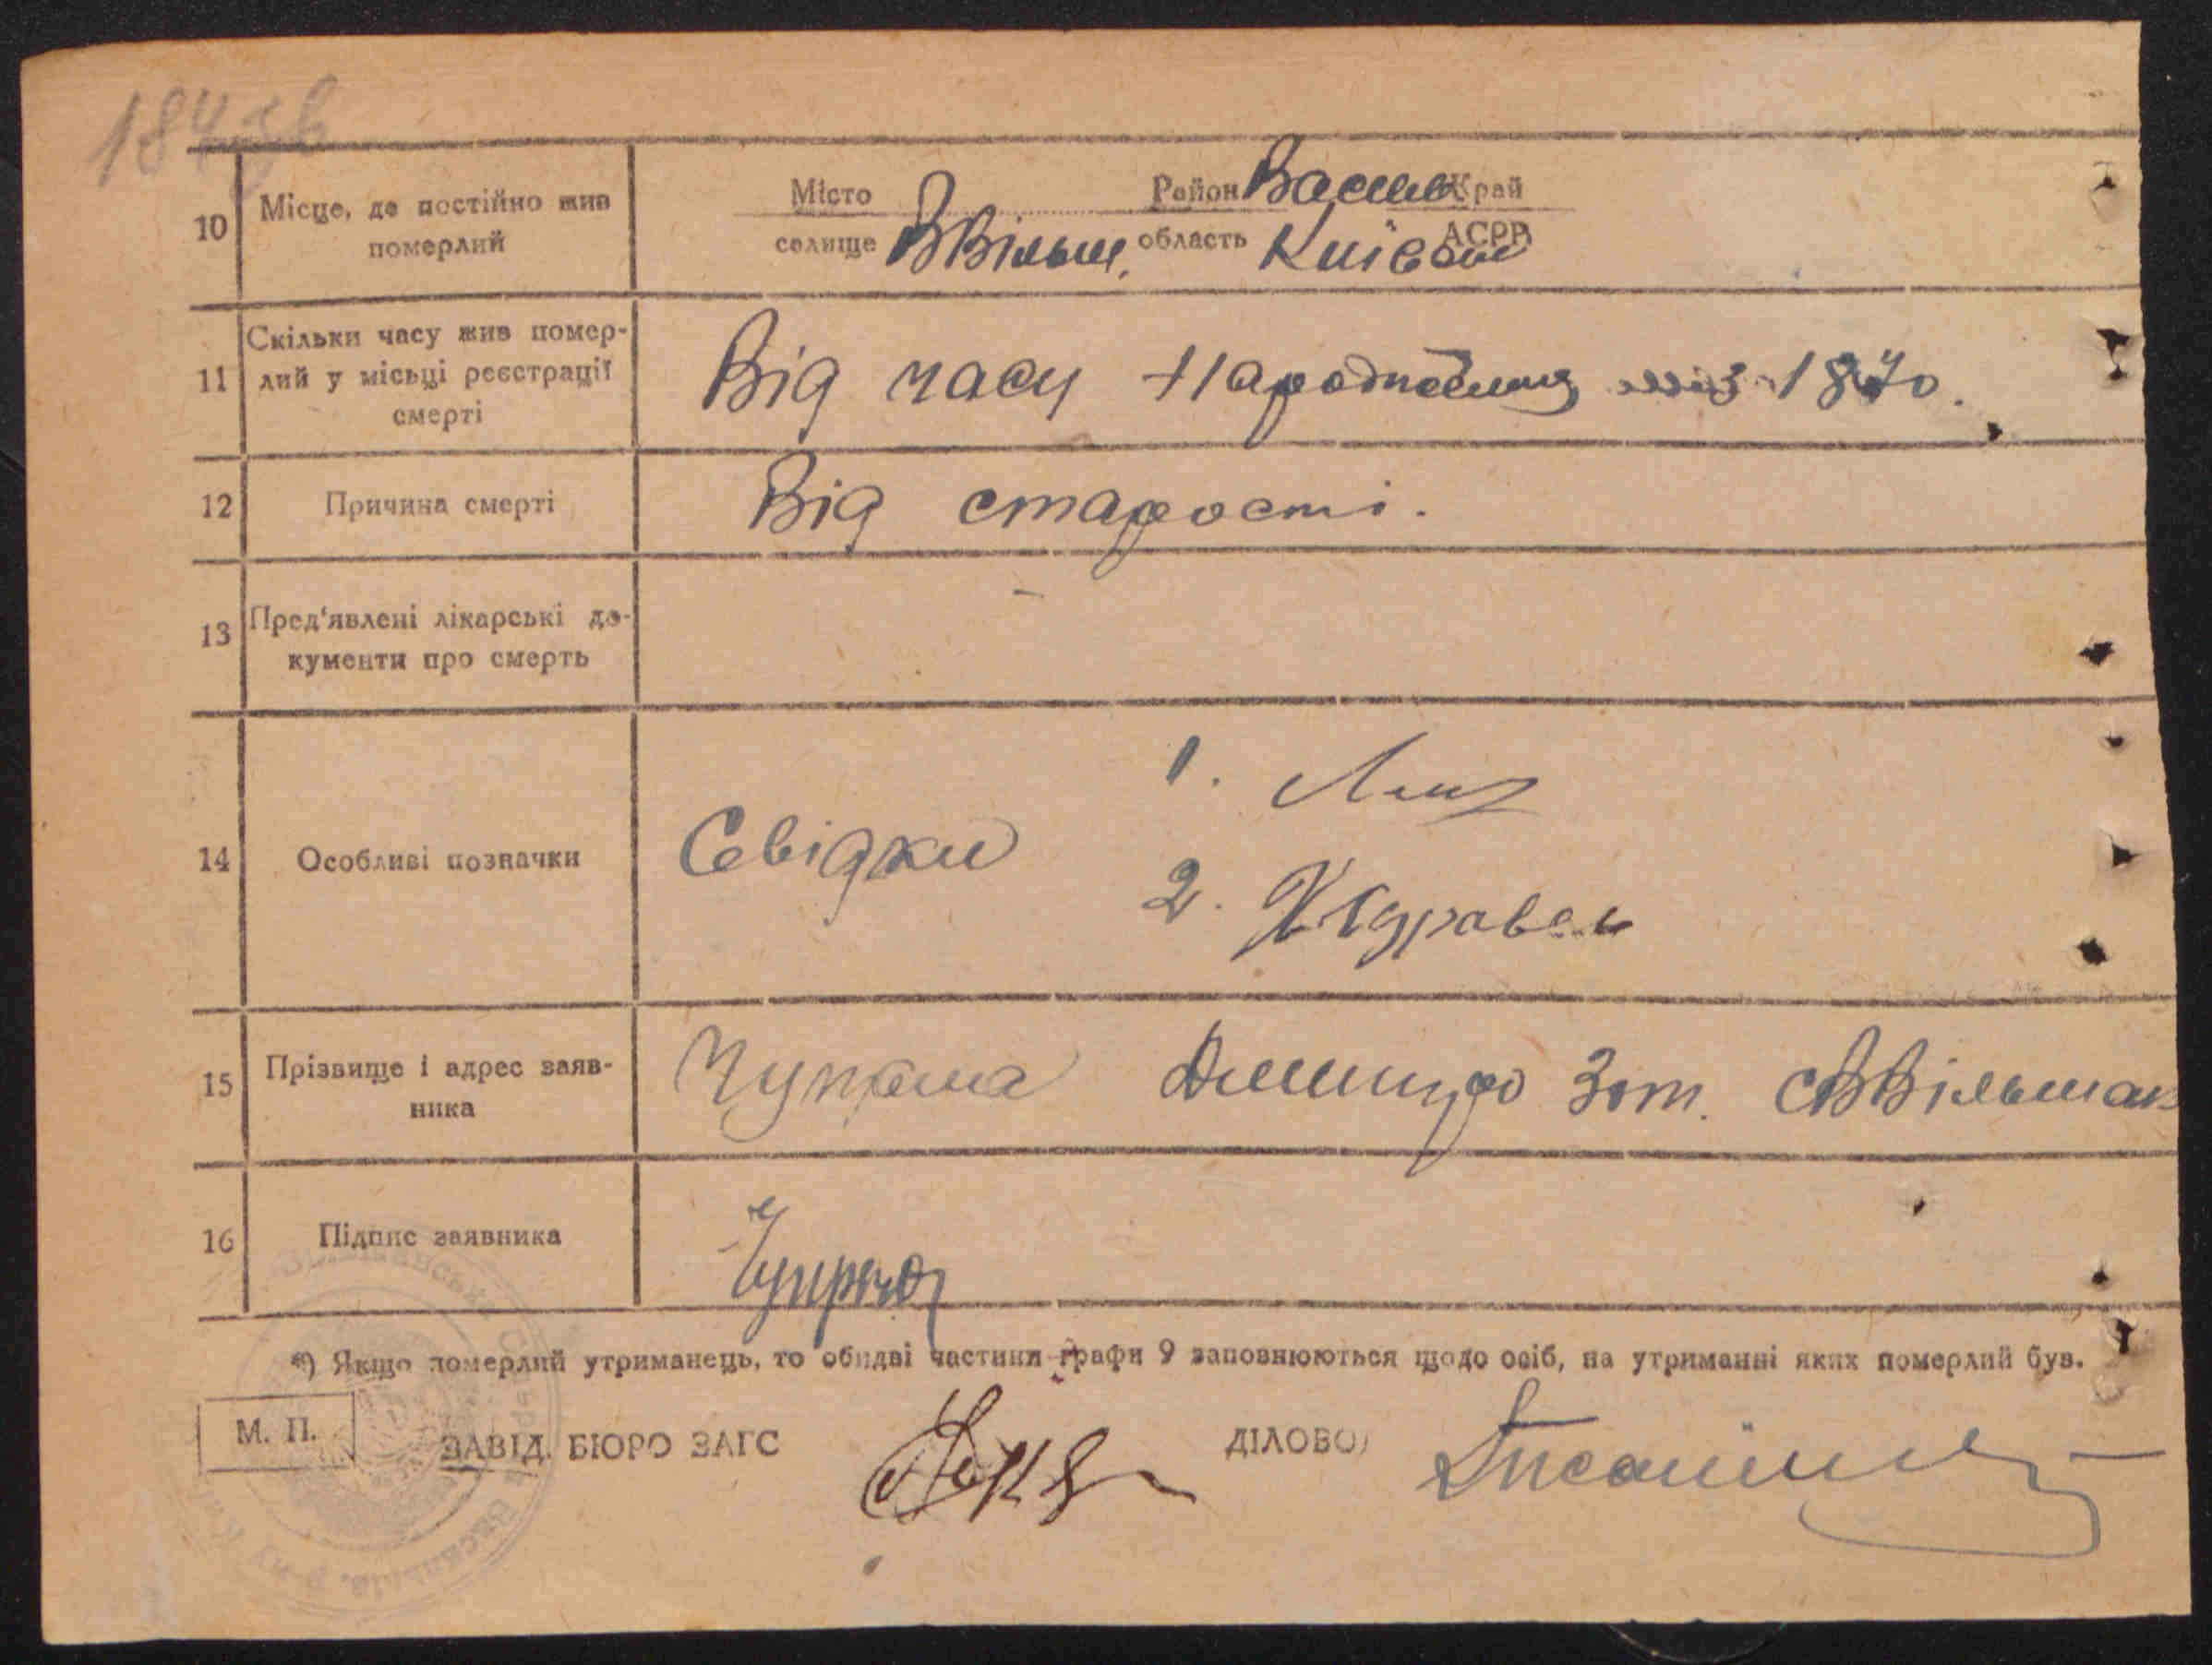 10 Місце, де постійно жив
померлий
Місто Район Васильк Край
селище ВВільш. область Київськ АСРР
11 Скільки часу жив помер-
лий у місьці реєстрації
смерті
Від часу Народження з 1870.
12 Причина смерті
Від старости.
13 Пред'явлені лікарські до-
кументи про смерть
14 Особливі позначки
Свідки
1.
2. Журавель
15 Прізвище і адрес заяв-
ника
Зот. с ВВільшан
16 Підпис заявника
*) Якщо померлий утриманець, то обидві частини графи 9 заповнюються щодо осіб, на утриманні яких померлий був.
М. П.
ЗАВІД. БЮРО ЗАГС ДІЛОВОД